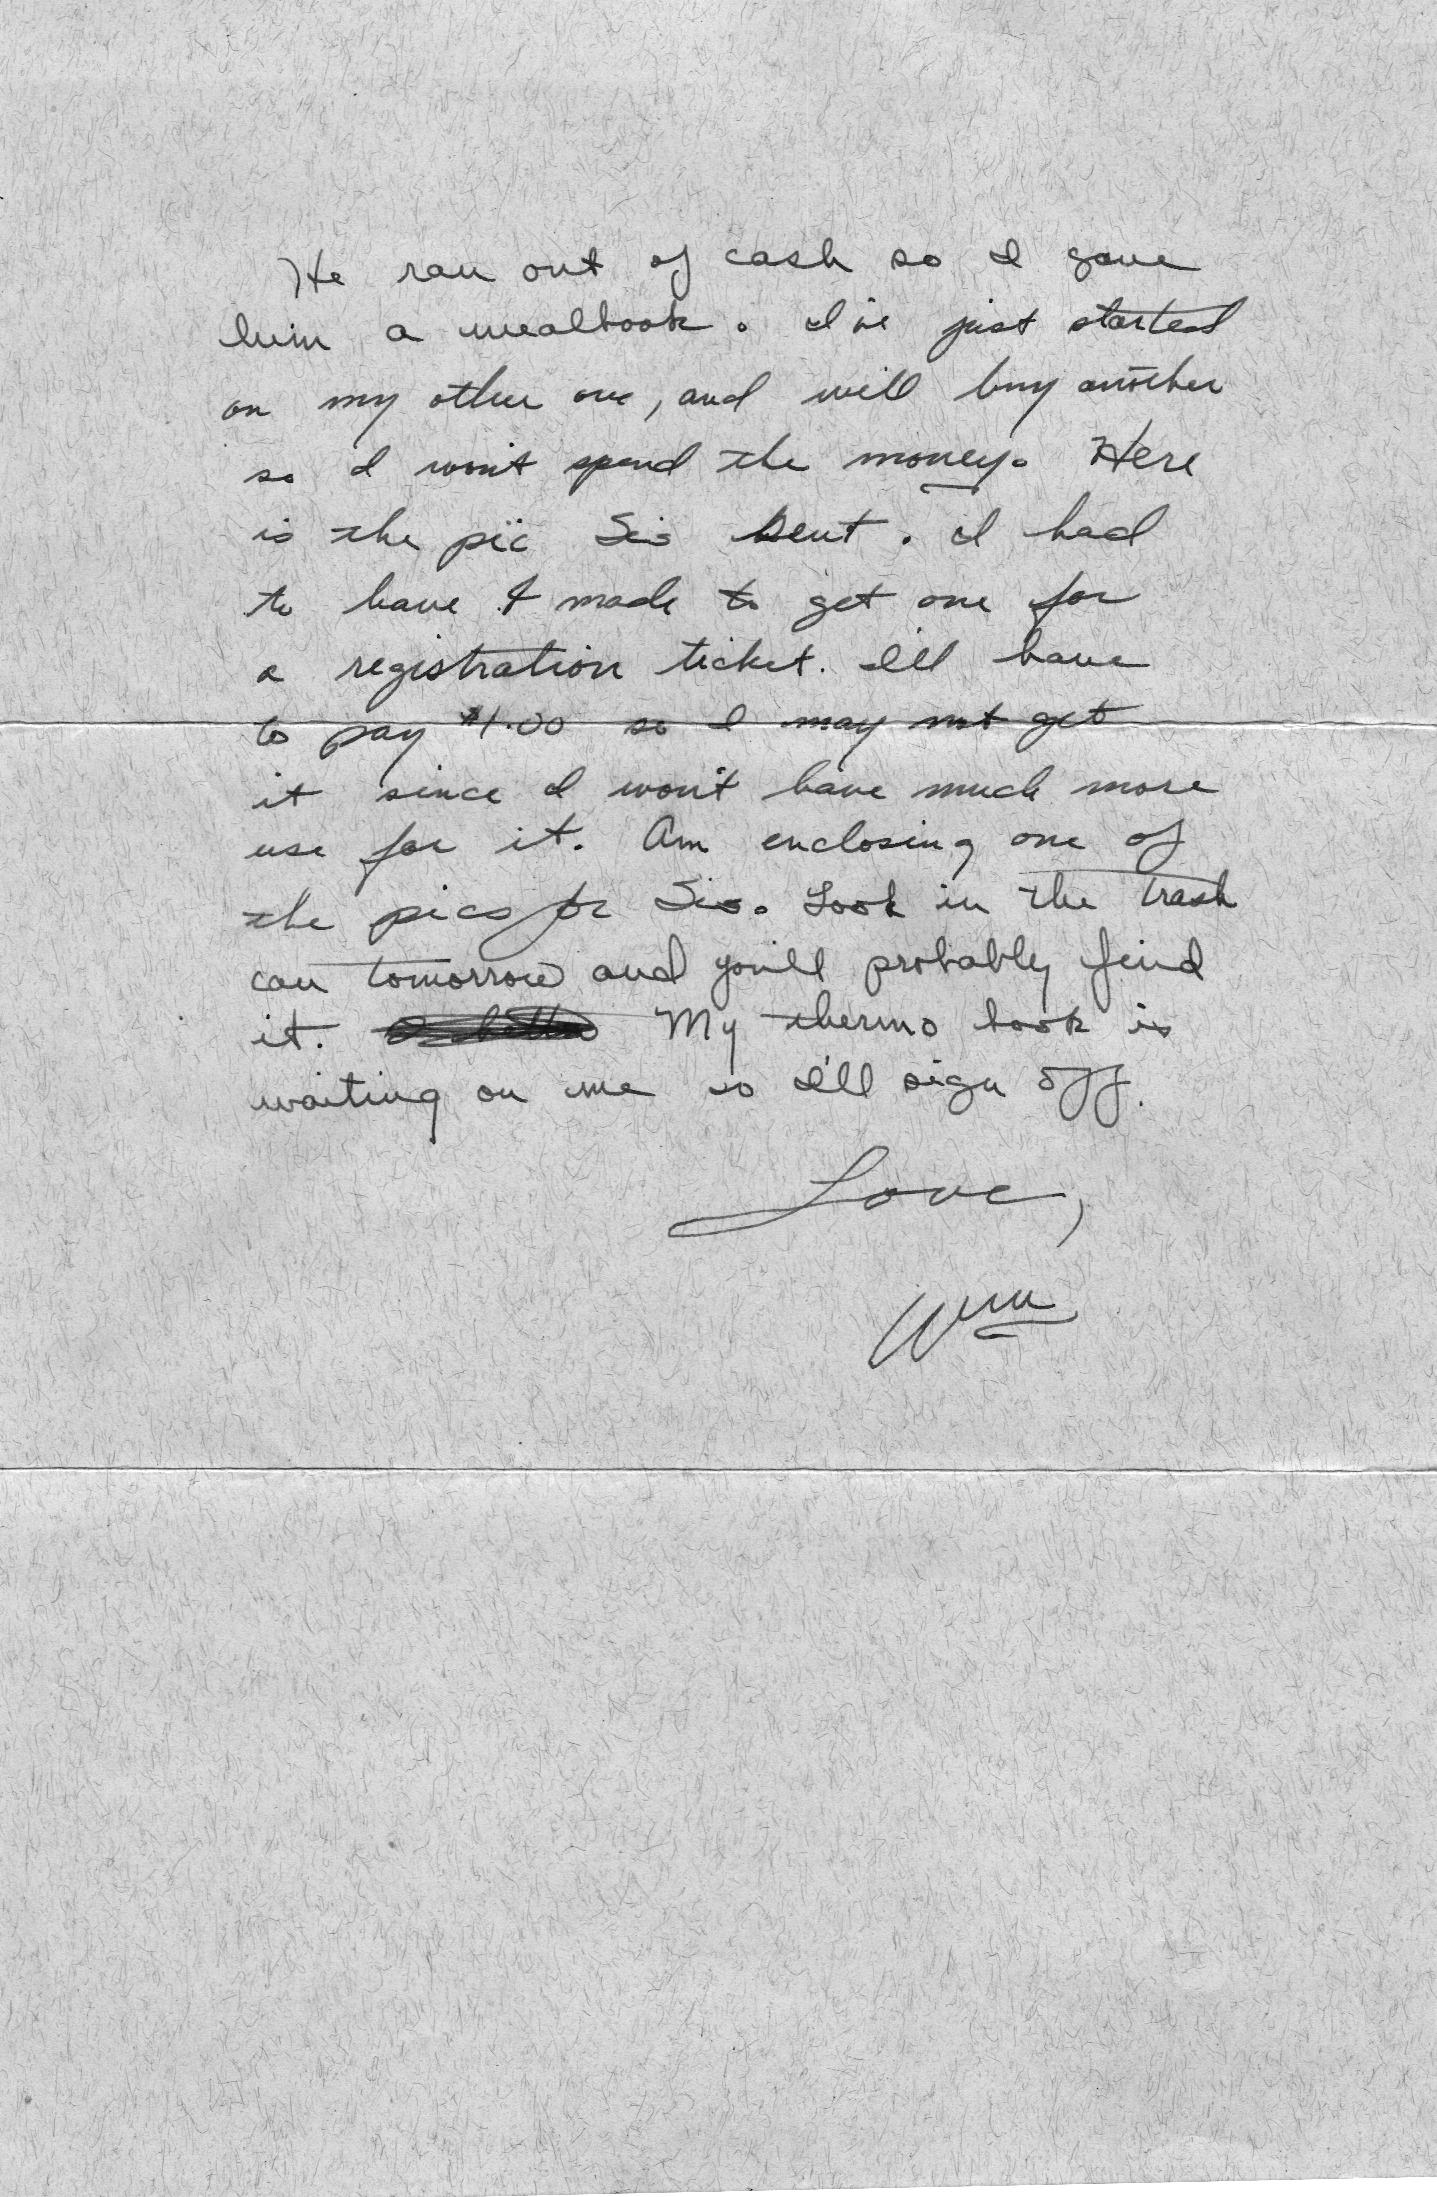 He ran out of cash so I gave
him a mealbook. I've just started
on my other one, and will buy another
so I won't spend the money. Here
is the pic Sis sent. I had
to have 4 made to get one for
a registration ticket. I'll have
to pay $1.00 so I may not get
it since I won't have much more
use for it. Am enclosing one of
the pics for Sis. Look in the trash
can tomorrow and you'll probably find
it. My thermo book is
waiting on me so I'll sign off.
Love,
Wm